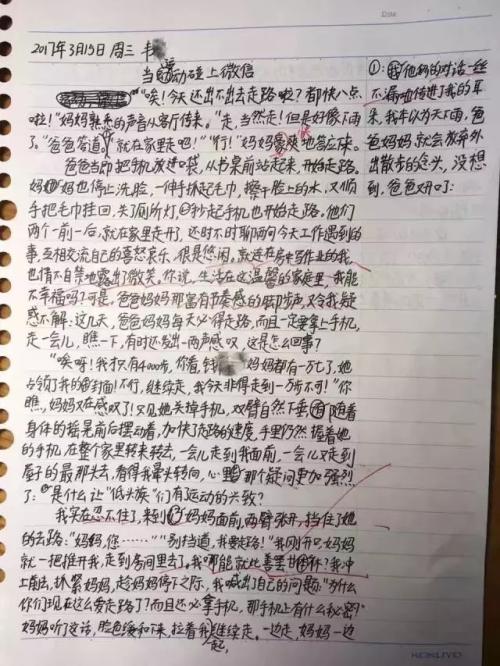 2017年3月15日 周三
当运动碰上微信
“唉！今天还出不出去走路啦？都快八点
啦！”妈妈熟悉的声音从客厅传来。“走，当然走！但是好像下雨
了。”爸爸答道，“就在家里走吧！”“行！”妈妈爽快地答应来。
爸爸当即把手机放进口袋，从书桌前站起来，开始走路。
妈妈也停止洗脸，一伸手抓起毛巾，擦干脸上的水，又顺
手把毛巾挂回，关了厕所灯，抄起手机也开始走路。他们
两个一前一后，就在家里走开了，还时不时聊两句今天工作遇到的
事，互相交流自己的喜怒哀乐，很是悠闲，就连在房中写作业的我，
也情不自禁地露出了微笑。你说，生活在这温馨的家庭里，我能
不幸福吗？可是，爸爸妈妈那富有节奏感的脚步声，又令我疑
惑不解：这几天，爸爸妈妈每天必得走路，而且一定要拿上手机，
走一会儿，瞧一下，有时还发出一两声感叹，这是怎么回事？
“唉呀！我才只有4000步，你看，钱 妈妈都有一万七了，她
占领了我的封面！不行，继续走，我今天非得走到一万步不可！”你
瞧，妈妈又在感叹了！只见她关掉手机，双臂自然下垂，随着
身体的摇晃前后摆动着，加快了走路的速度，手里仍然握着她
的手机，在整个家里来转去，一会儿走到我面前，一会儿又走到
屋子的最那头去，看得我晕头转向，心里那个疑问更加强烈
了：是什么让“低头族”们有运动的兴致？
我实在忍不住了，来到妈妈面前，两臂张开，挡住了她
的去路：“妈妈，您……”“别挡道，我要走路！”我刚开口，妈妈
就一把推开我，走到房间里去了，我哪能就此善罢甘休？我冲
上前去，抓紧妈妈，趁妈妈停下之际，我喊出了自己的问题：“为什么
你们现在这么爱走路了？而且还必拿手机，那手机上有什么秘密？”
妈妈听了这话，脸色缓和下来，拉着我一起，继续走。一边走，妈妈一边
①：他俩的对话一丝
不漏地传进了我的耳
朵，我本以为天下雨，爸
爸妈妈就会放弃外
出散步的念头，没想
到，爸爸又开口了：
KOKUYO